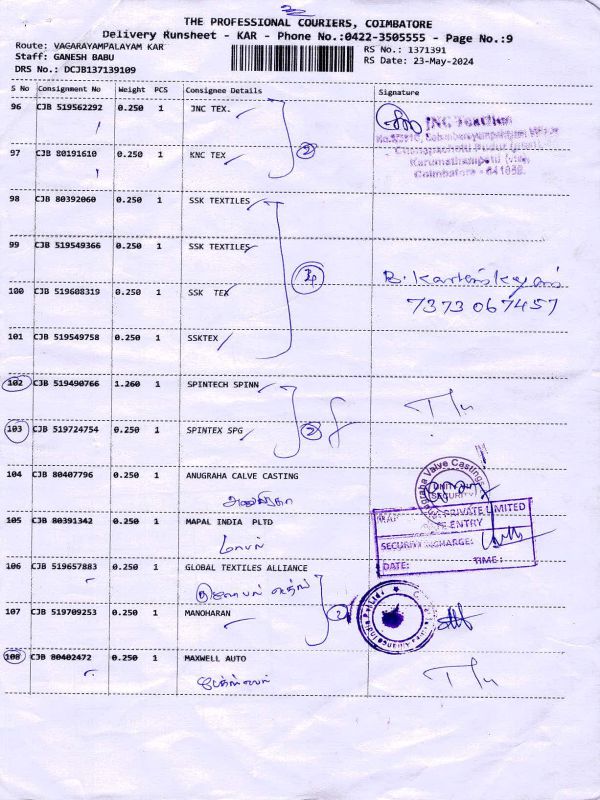 THE PROFESSIONAL COURIERS, COIMBATORE
Delivery Runsheet - KAR - Phone No.:0422-3505555 - Page No.:9
Route: VAGARAYAMPALAYAM KAR RS No.: 1371391
Staff: GANESH BABU RS Date: 23-May-2024
DRS No.: DCJB137139109
S No Consignment No Weight PCS Consignee Details Signature
96 CJB 519562292 0.250 1 JNC TEX. JNC Textiles
97 CJB 80191610 0.250 1 KNC TEX 2
Coimbatore - 641659.
98 CJB 80392060 0.250 1 SSK TEXTILES
99 CJB 519549366 0.250 1 SSK TEXTILES
B. Karthikeyan
100 CJB 519608319 0.250 1 SSK TEX 7373067457
101 CJB 519549758 0.250 1 SSKTEX
102 CJB 519490766 1.260 1 SPINTECH SPINN
103 CJB 519724754 0.250 1 SPINTEX SPG 2
104 CJB 80407796 0.250 1 ANUGRAHA CALVE CASTING
Anugraha Valve Castings
SECURITY
105 CJB 80391342 0.250 1 MAPAL INDIA PLTD
PRIVATE LIMITED
ENTRY
மாபல்
SECURITY INCHARGE:
DATE: TIME:
106 CJB 519657883 0.250 1 GLOBAL TEXTILES ALLIANCE
107 CJB 519709253 0.250 1 MANOHARAN 2
108 CJB 80402472 0.250 1 MAXWELL AUTO